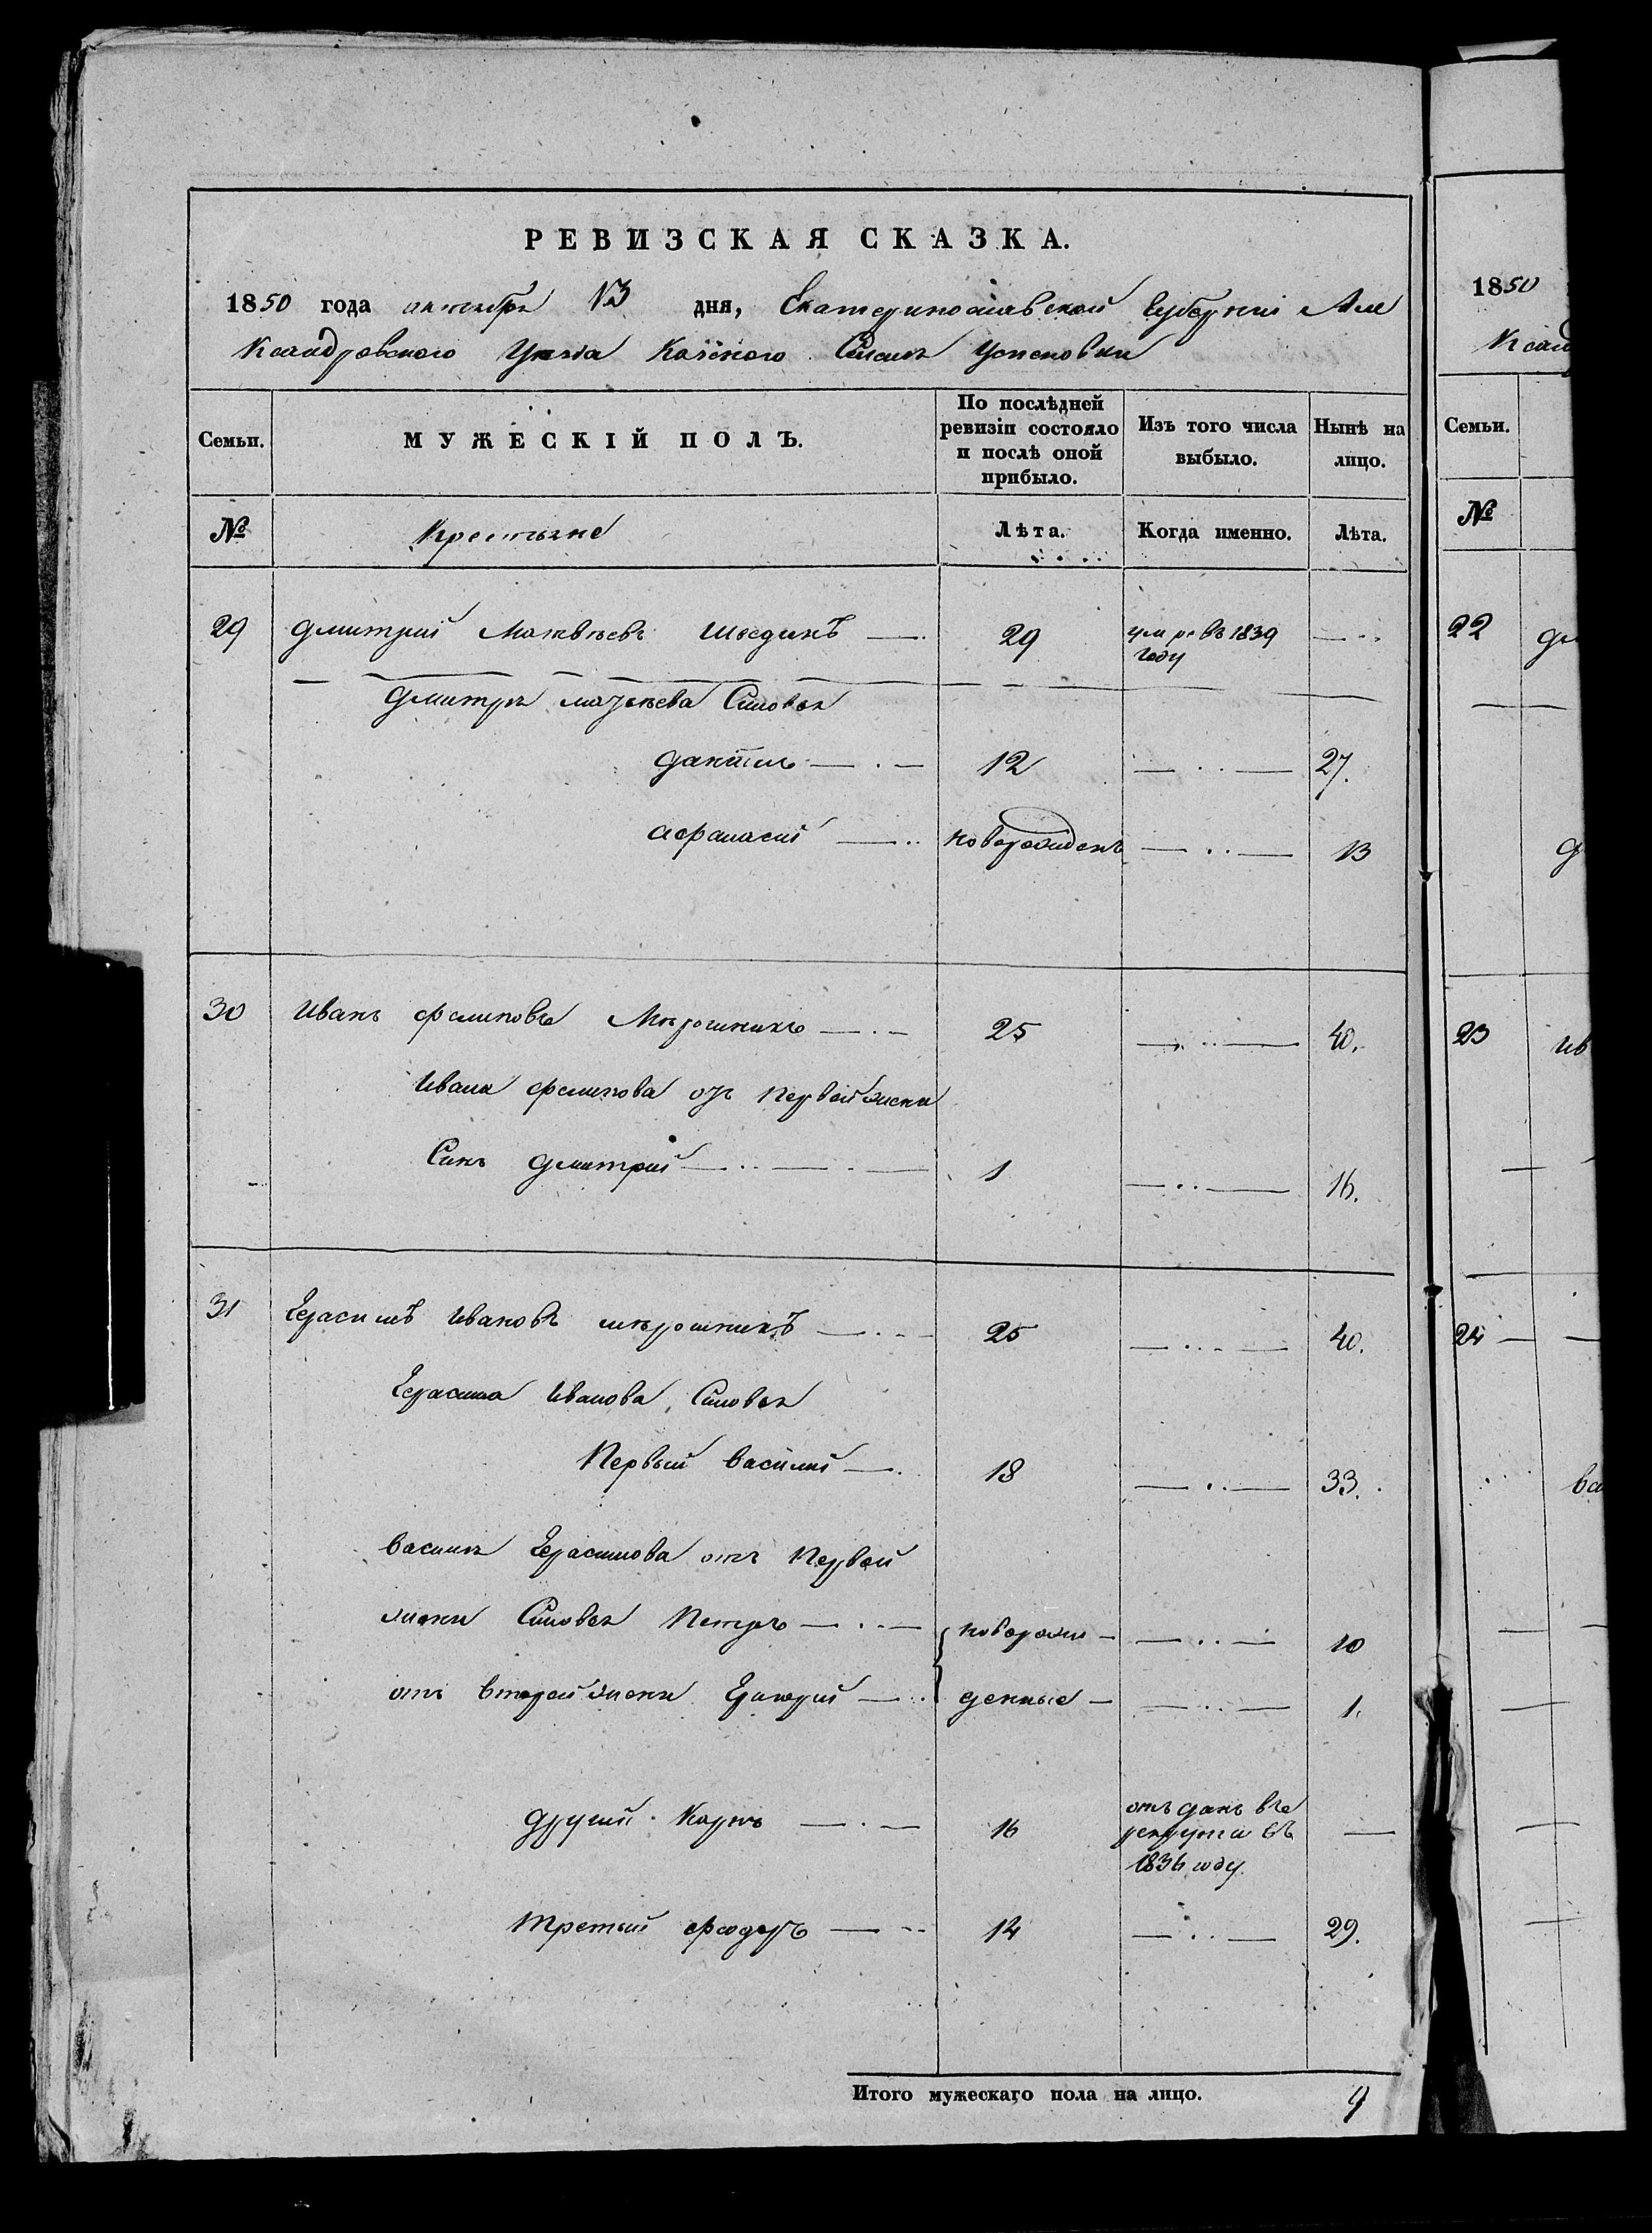 РЕВИЗСКАЯ СКАЗКА.
1850 года октября 13 дня, Екатеринославской Губерніи Але
ксандровского Уезда Казеного Селенія Успеновки
Семьи. МУЖЕСКІЙ ПОЛЪ. По послѣдней ревизіи состояло и послѣ оной прибыло. Изъ того числа выбыло. Нынѣ на лицо.
№ Крестьяне Лѣта. Когда именно. Лѣта.
29 Дмитрий Матвѣевъ Шведикъ 29 умре въ 1839 году
Дмитрія Матвѣева Синовья
Даниилъ 12 27.
Афанасий новорожденъ 13
30 Иванъ Фалимовъ Мѣрошникъ 25 40.
Ивана отъ первой жени
Синъ Дмитрий 1 16.
31 Герасимъ Ивановъ мѣрошникъ 25 40.
Герасима Иванова Синовья
Первый Василий 18 33.
Василия Герасимова отъ Первой
жени Синовья Петръ новорож- 10
отъ второй жени Григорий денные 1.
другий Карпъ 16 отъданъ въ рекрути въ 1836 году.
Третий Федоръ 14 29.
Итого мужескаго пола на лицо. 9
1850
Ксан
Семьи.
№
22
23 Ив
24
Ва